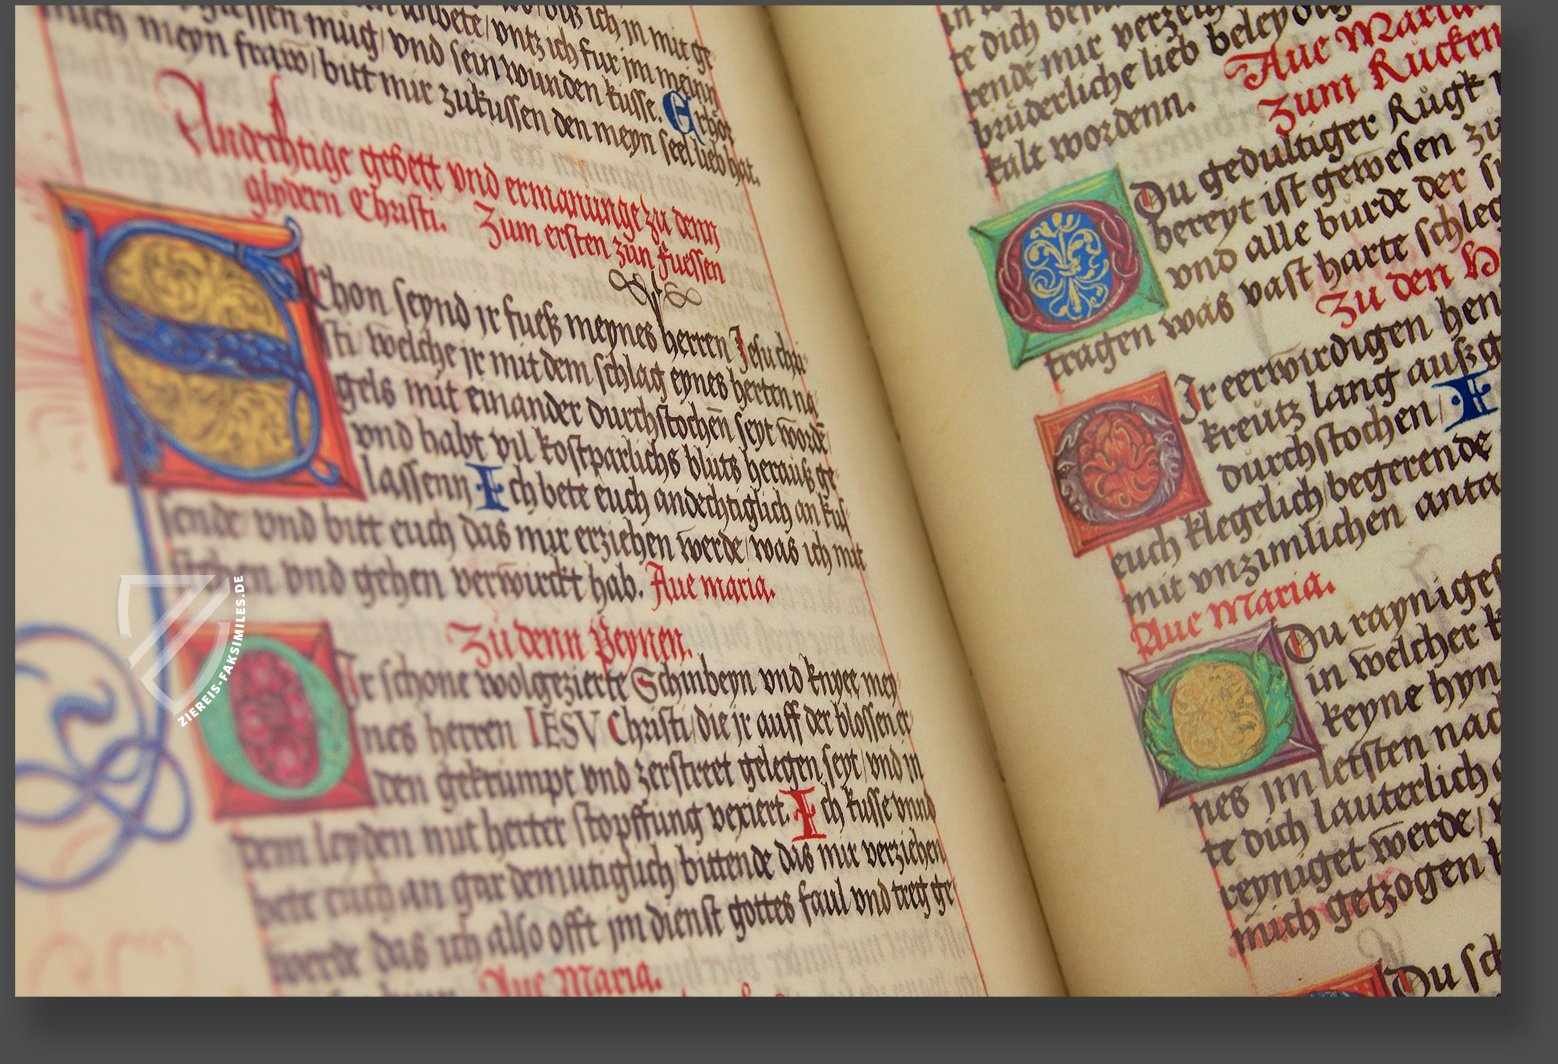 mich meyn fraw/ bitt mir zukussen den meyn seel lieb hat.
giessen mug/ vnd sein wunden kusse. Erhör
Andechtige gebett vnd ermanunge zu denn
glydern Christi. Zum ersten zün fuessen
Schon seynd jr fuess meynes herren Jesu chri
sti/ welche jr mit dem schlag eynes herten na
gels mit einander durchstochen seyt worde
vnd habt vil kostparlichs bluts herauß ge
lassenn Ich bete euch andechtiglich an kus
sende/ vnd bitt euch das mir erziehen werde/ was ich mit
stehen vnd gehen verwirckt hab. Aue maria.
Zu denn Peynen.
Ir schone wolgezierte Schinbeyn vnd knyee mey
nes herren IESV Christi/ die jr auff der blossen er
den gekrumpt vnd zerstreet gelegen seyt/ vnd in
dem leyden mit herter stopffung vexiert. Ich kusse vnnd
bett euch an gar demutiglich bittende das mir verziehen
werde das ich also offt jm dienst gottes faul vnd treg ge
Aue Maria.
te dich
rende mir verzeich
bruderliche lieb beleydig
kalt wordenn. Aue Maria
Zum Rucken
Du gedultiger Rugk
bereyt ist gewesen zu
vnd alle burde der
tragen was vast harte schleg
Zu den H
Ir eerwirdigen hen
kreutz lang außg
durchstochen/ I
euch klegelich/ begerende
mit vnzimlichen anta
Aue Maria.
Du rayniges
in welcher k
keyne hyn
nes jm letsten nac
te dich lauterlich
reyniget werde/
mich getzogen
Du sch
ZIEREIS-FAKSIMILES.DE